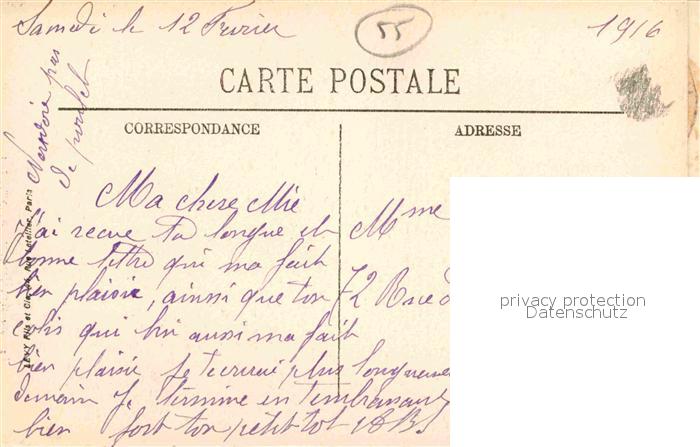 Samedi le 12 Fevrier
55
1916
CARTE POSTALE
CORRESPONDANCE
ADRESSE
pas
de
Ma chere Mie
J'ai recue ta longue et
bonne lettre qui ma fait
bien plaisir, ainsi que ton
colis qui lui aussi ma fait
bien plaisir je tecrirai plus longuement
demain Je termine en tembrassant
bien fort ton petit tot
Mme
72 Rue d
LEVY Fils et Cie, Paris
privacy protection
Datenschutz